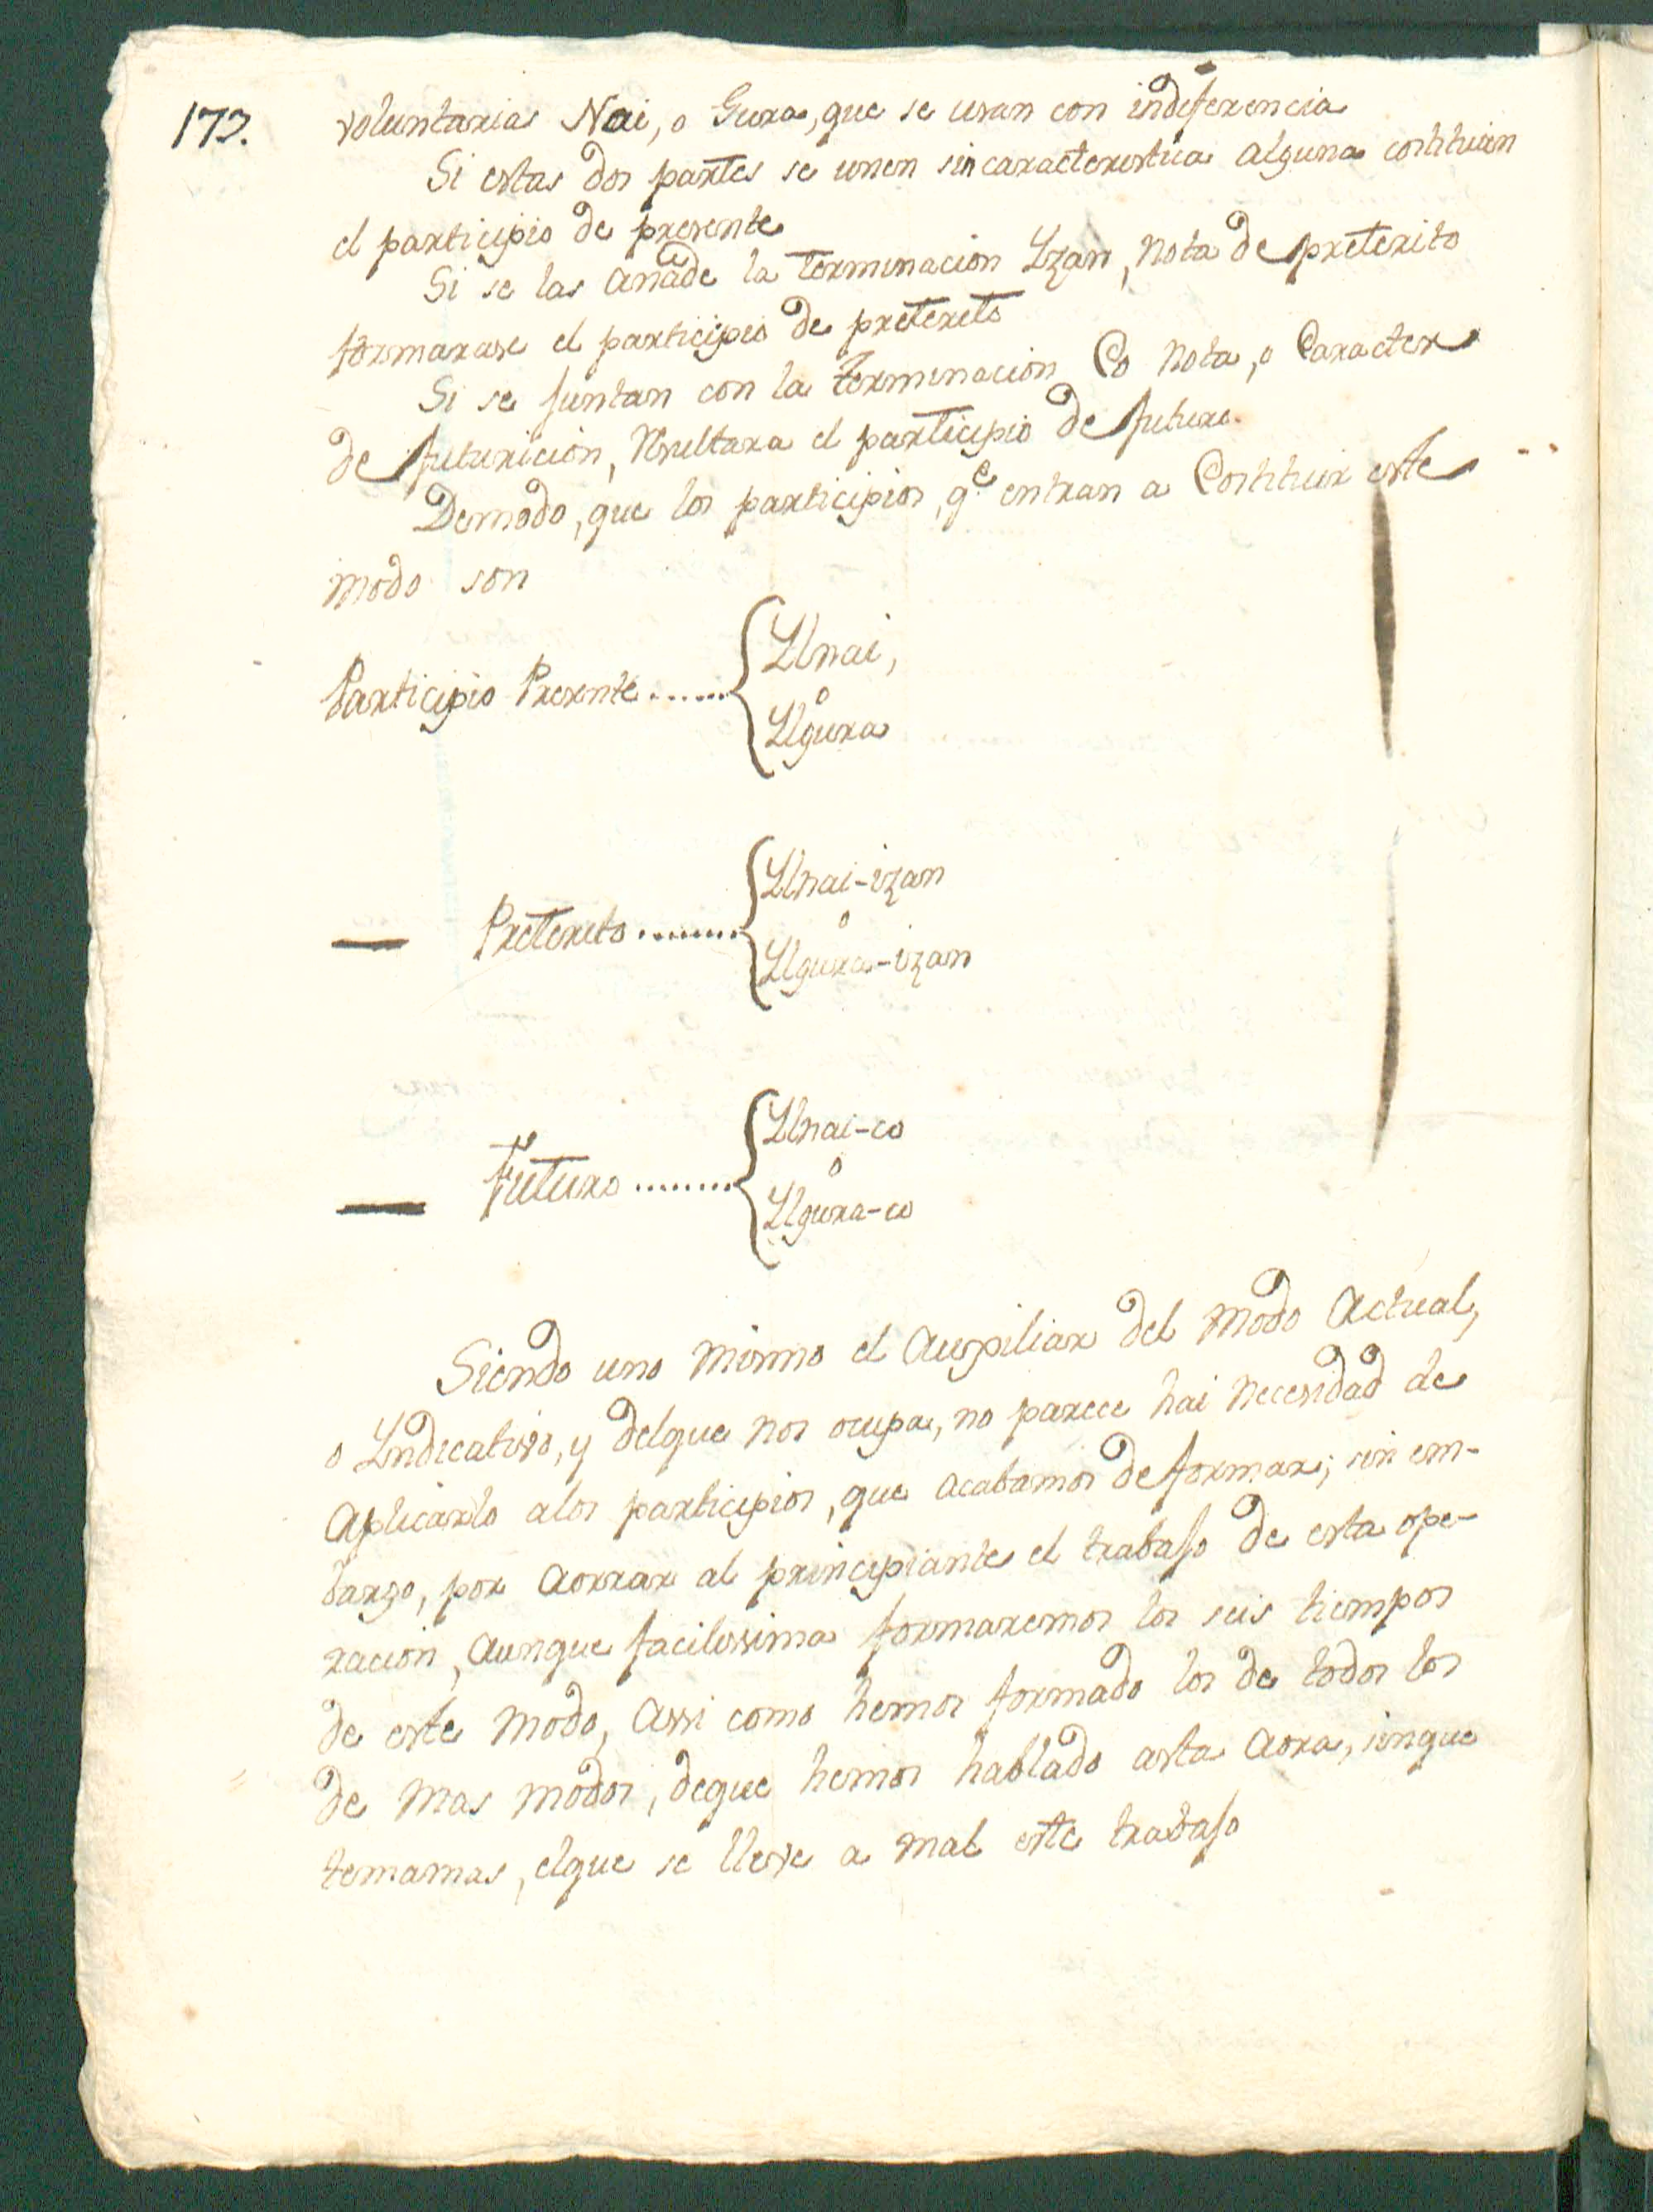 173.
voluntarias Nai, o Gura, que se usan con indeferencia
Si estas dos partes se unen sin caracteristica alguna costituien
el participio de presente
Si se las añade la terminacion Yzan, nota de preterito
formarase el participio de preterito
Si se juntan con la terminacion Co nota, o Caracter
de futuricion, resultara el participio de futuro.
Demodo, que los participios, q.e entran a Costituir este
modo son
Participio Presente ...... { Ylnai,
o
Ylgura
— Preterito ....... { Ylnai-izan
o
Ylgura-izan
— Futuro ........ { Ylnai-co
o
Ylgura-co
Siendo uno mismo el Auxiliar del Modo Actual,
o Yndicativo, y delque nos ocupa, no parece hai necesidad de
Aplicarlo alos participios, que acabamos de formar; sin em-
bargo, por aorrar al principiante el trabajo de esta ope-
racion, aunque facilissima formaremos los seis tiempos
de este Modo, assi como hemos formado los de todos los
de mas modos, deque hemos hablado asta aora, sinque
temamas, elque se lleve a mal este trabajo